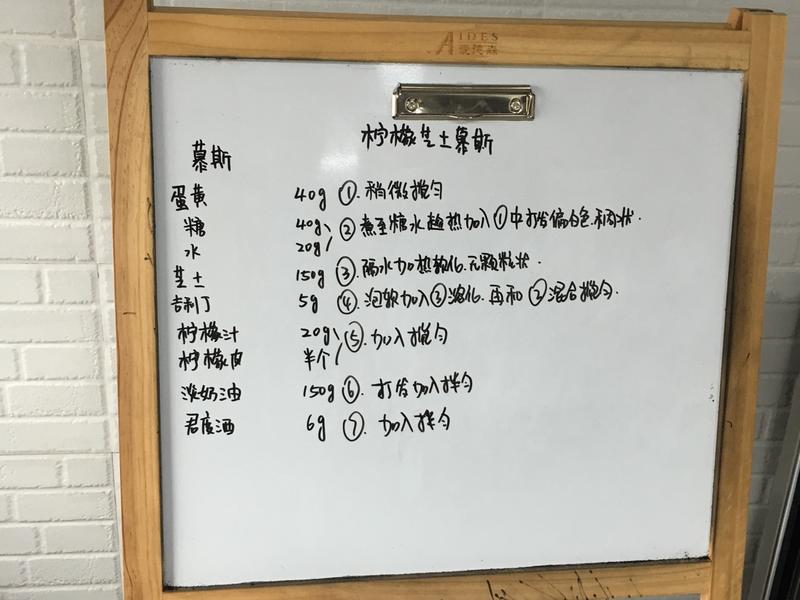 AIDES
爱德森
柠檬芝士慕斯
慕斯
蛋黄 40g ①. 稍微搅匀
糖 40g ②煮至糖水趁热加入①中打发偏白色.
水 20g
芝士 150g ③. 隔水加热软化.无颗粒状.
吉利丁 5g ④. 泡软加入③溶化.再和②混合搅匀.
柠檬汁 20g ⑤. 加入搅匀
柠檬皮 半个
淡奶油 150g ⑥. 打发加入拌匀
君度酒 6g ⑦. 加入拌匀